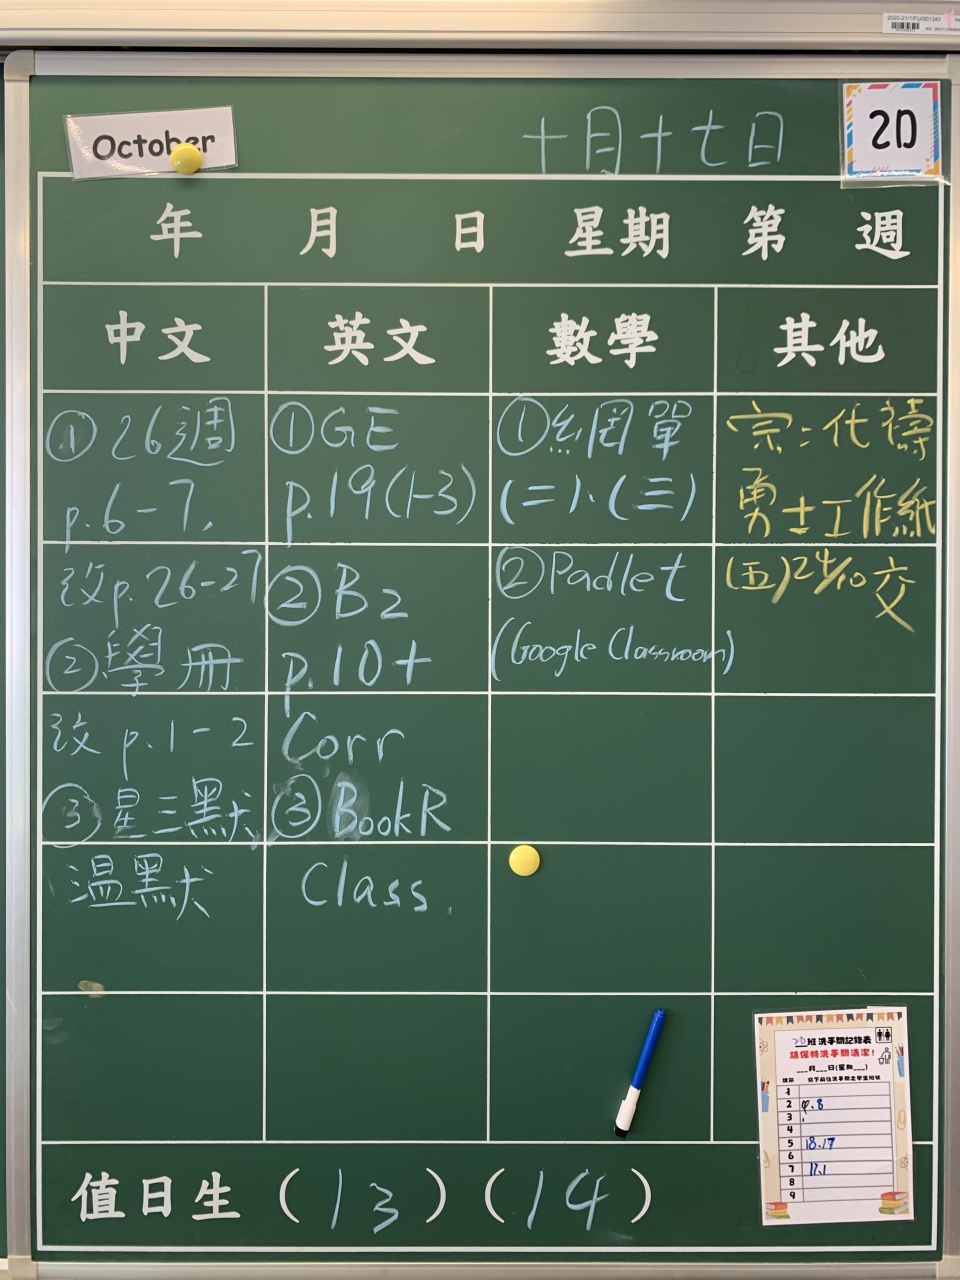 2020-21/1/FU/001343
October
十月十七日
2D
年 月 日 星期 第 週
中文 英文 數學 其他
① 26週
p.6-7.
改p.26-27
② 學冊
改 p.1-2
③ 星三默
溫默
① GE
p.19(1-3)
② B2
p.10+
Corr
③ BookR
Class.
① 網單
(二)、(三)
② Padlet
(Google Classroom)
宗:代禱
勇士工作紙
(五)24/10交
值日生 (13) (14)
2D班洗手間記錄表
請保持洗手間清潔!
___月___日(星期___)
1
2 4.8
3
4
5 18.17
6
7 11.1
8
9